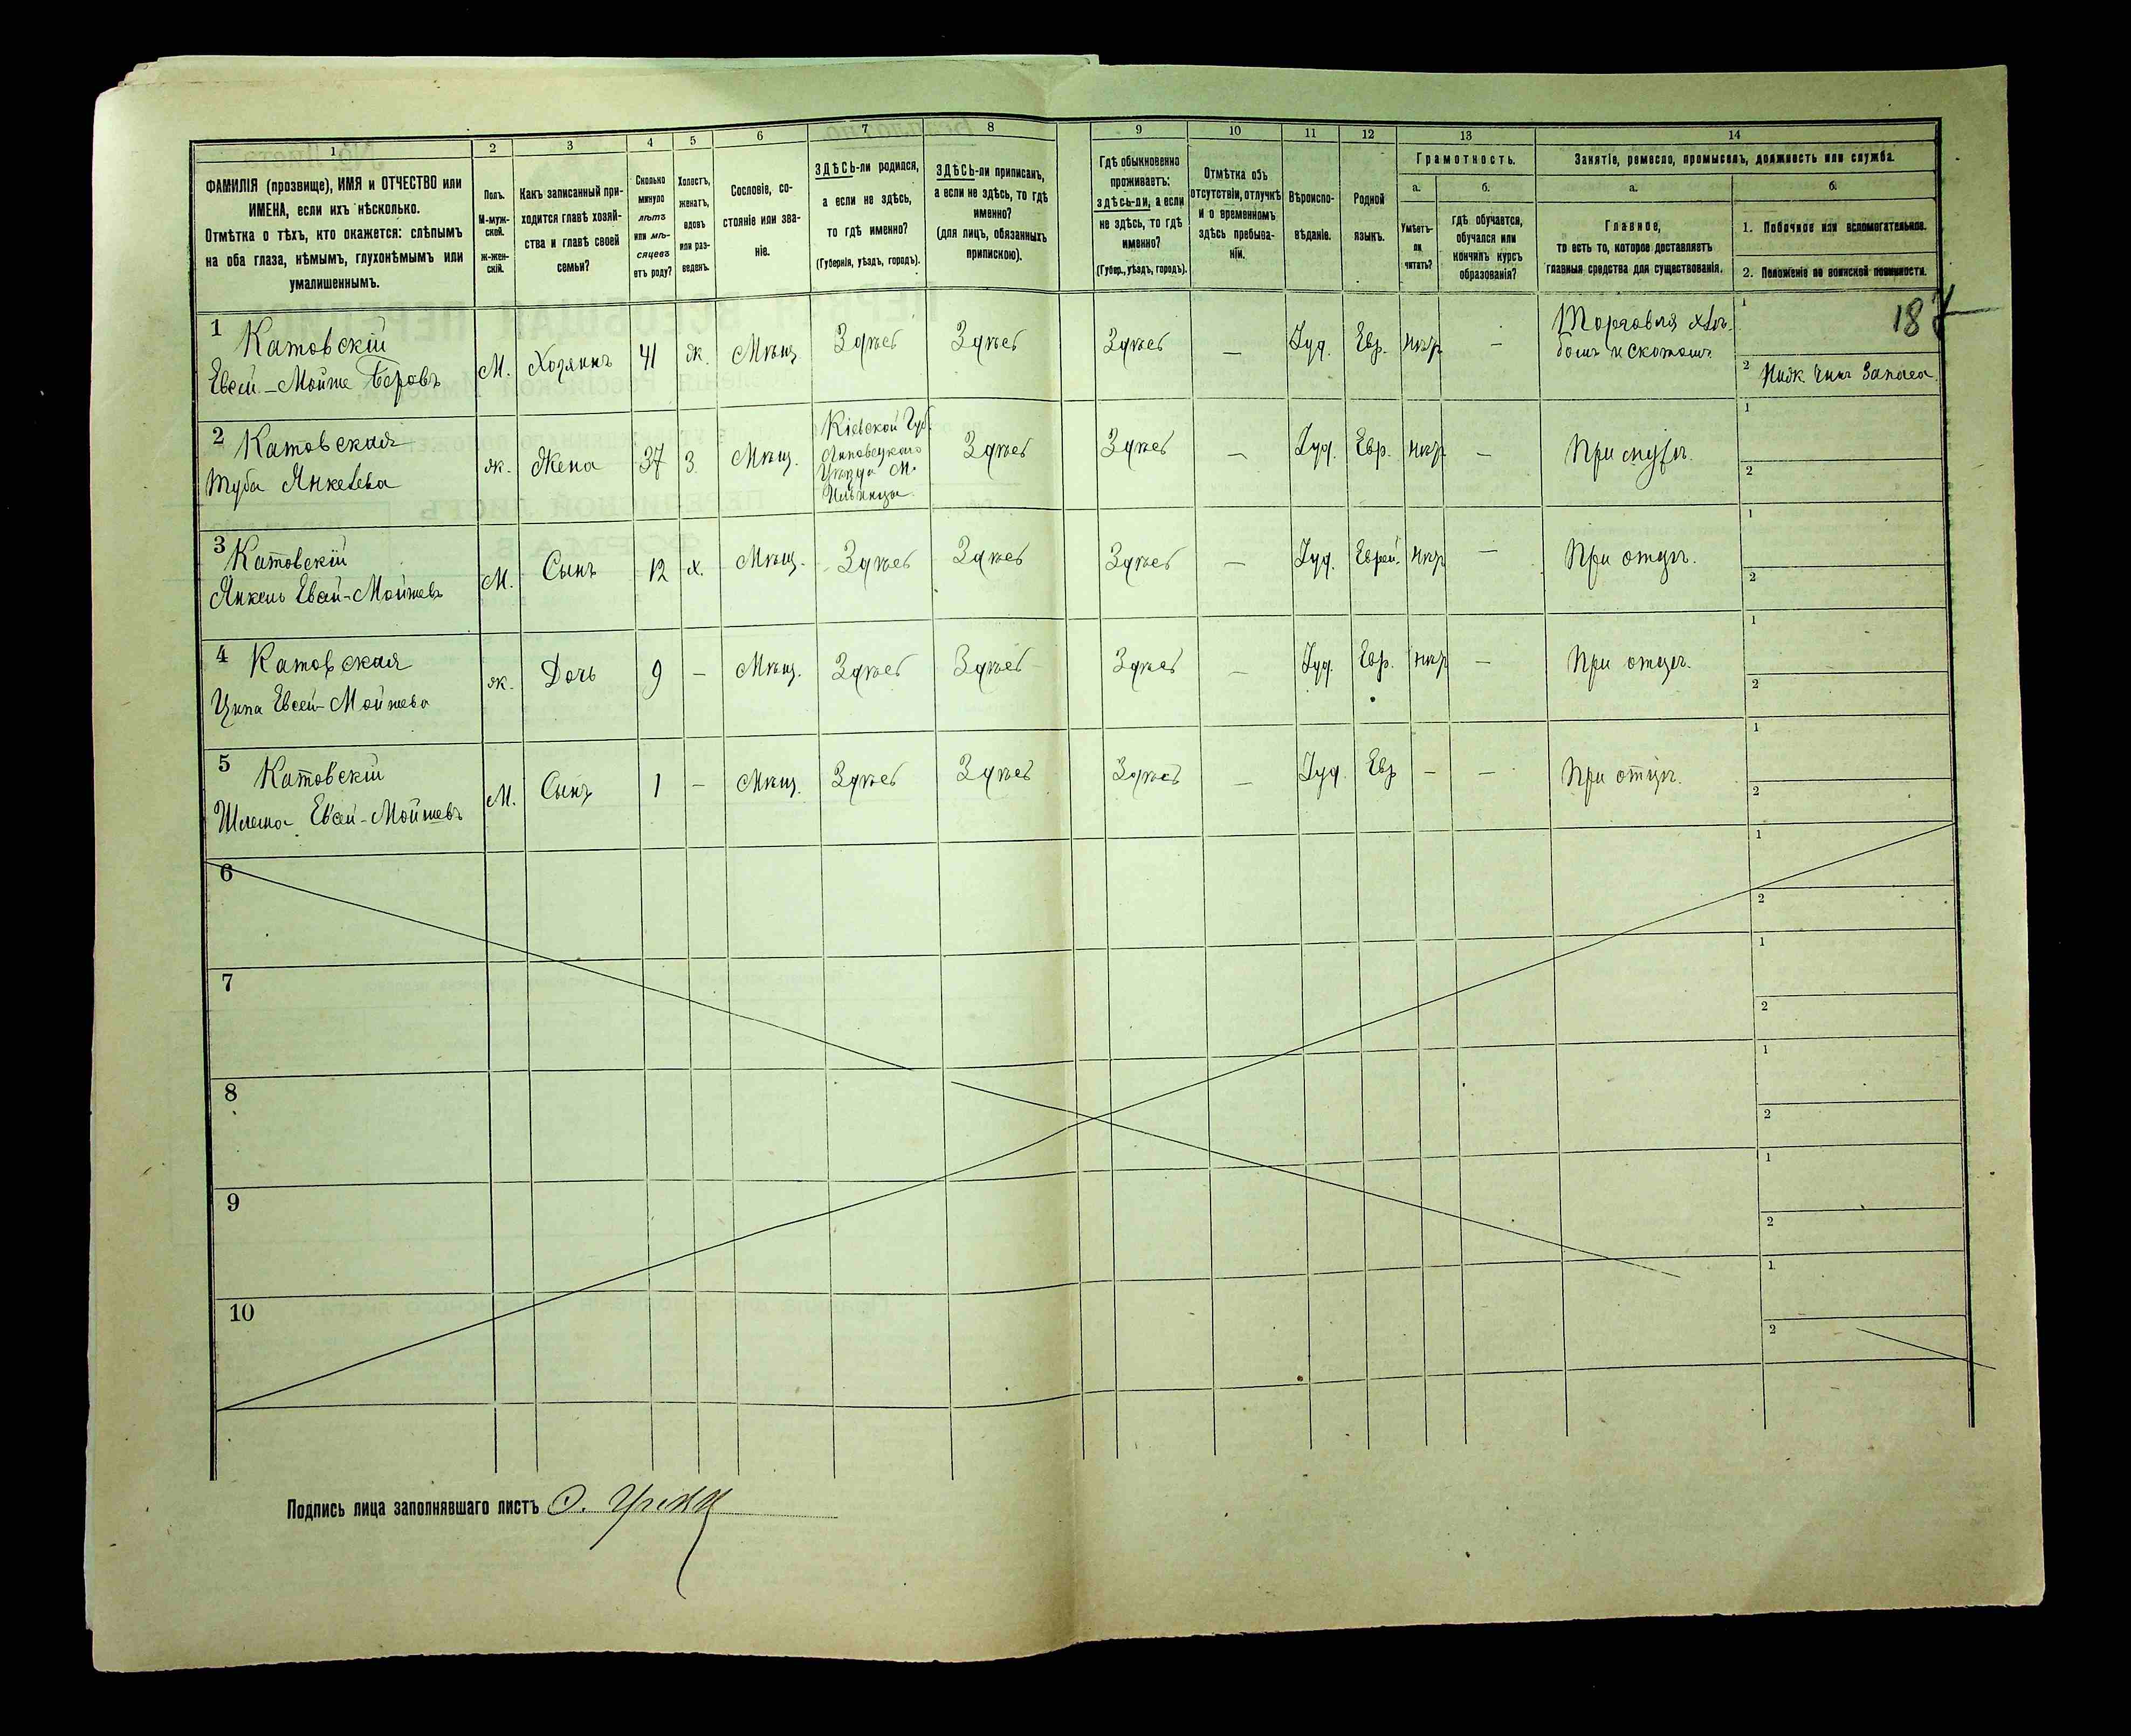 1 2 3 4 5 6 7 8 9 10 11 12 13 14
ФАМИЛІЯ (прозвище), ИМЯ и ОТЧЕСТВО или
ИМЕНА, если ихъ нѣсколько.
Отмѣтка о тѣхъ, кто окажется: слѣпымъ
на оба глаза, нѣмымъ, глухонѣмымъ или
умалишеннымъ.
Полъ.
М-муж-
ской.
Ж-жен-
скій.
Какъ записанный при-
ходится главѣ хозяй-
ства и главѣ своей
семьи?
Сколько
минуло
лѣтъ
или мѣ-
сяцевъ
отъ роду?
Холостъ,
женатъ,
вдовъ
или раз-
веденъ.
Сословіе, со-
стояніе или зва-
ніе.
ЗДѢСЬ-ли родился,
а если не здѣсь,
то гдѣ именно?
(Губернія, уѣздъ, городъ).
ЗДѢСЬ-ли приписанъ,
а если не здѣсь, то гдѣ
именно?
(для лицъ, обязанныхъ
припискою).
Гдѣ обыкновенно
проживаетъ:
здѣсь-ли, а если
не здѣсь, то гдѣ
именно?
(Губер., уѣздъ, городъ).
Отмѣтка объ
отсутствіи, отлучкѣ
и о временномъ
здѣсь пребыва-
ніи.
Вѣроиспо-
вѣданіе.
Родной
языкъ.
Грамотность.
а.
Умѣетъ-
ли
читать?
б.
гдѣ обучается,
обучался или
кончилъ курсъ
образованія?
Занятіе, ремесло, промыселъ, должность или служба.
а.
Главное,
то есть то, которое доставляетъ
главныя средства для существованія.
б.
1. Побочное или вспомогательное.
2. Положеніе по воинской повинности.
187
1 Катовскій
Евсей-Мойше Беровъ
М. Хозяинъ 41 ж. Мѣщ. Здѣсь Здѣсь Здѣсь — Іуд. Евр. нѣт —
Торговля хлѣ-
бомъ и скотомъ
1
2 Нижн. Чинъ Запаса
2 Катовская
Туба Янкелева
ж. Жена 37 З. Мѣщ.
Кіевской Губ.
Липовецкаго
Уѣзда М.
Ильинцы
Здѣсь Здѣсь — Іуд. Евр. нѣт — При мужѣ.
1
2
3 Катовскій
Янкель Евсей-Мойшевъ
М. Сынъ 12 х. Мѣщ. Здѣсь Здѣсь Здѣсь — Іуд. Еврей. нѣт — При отцѣ.
1
2
4 Катовская
Ципа Евсей-Мойшева
ж. Дочь 9 — Мѣщ. Здѣсь Здѣсь Здѣсь — Іуд. Евр. нѣт — При отцѣ.
1
2
5 Катовскій
Шлема Евсей-Мойшевъ
М. Сынъ 1 — Мѣщ. Здѣсь Здѣсь Здѣсь — Іуд. Евр — — При отцѣ.
1
2
6
1
2
7
1
2
8
1
2
9
1
2
10
1
2
Подпись лица заполнявшаго листъ